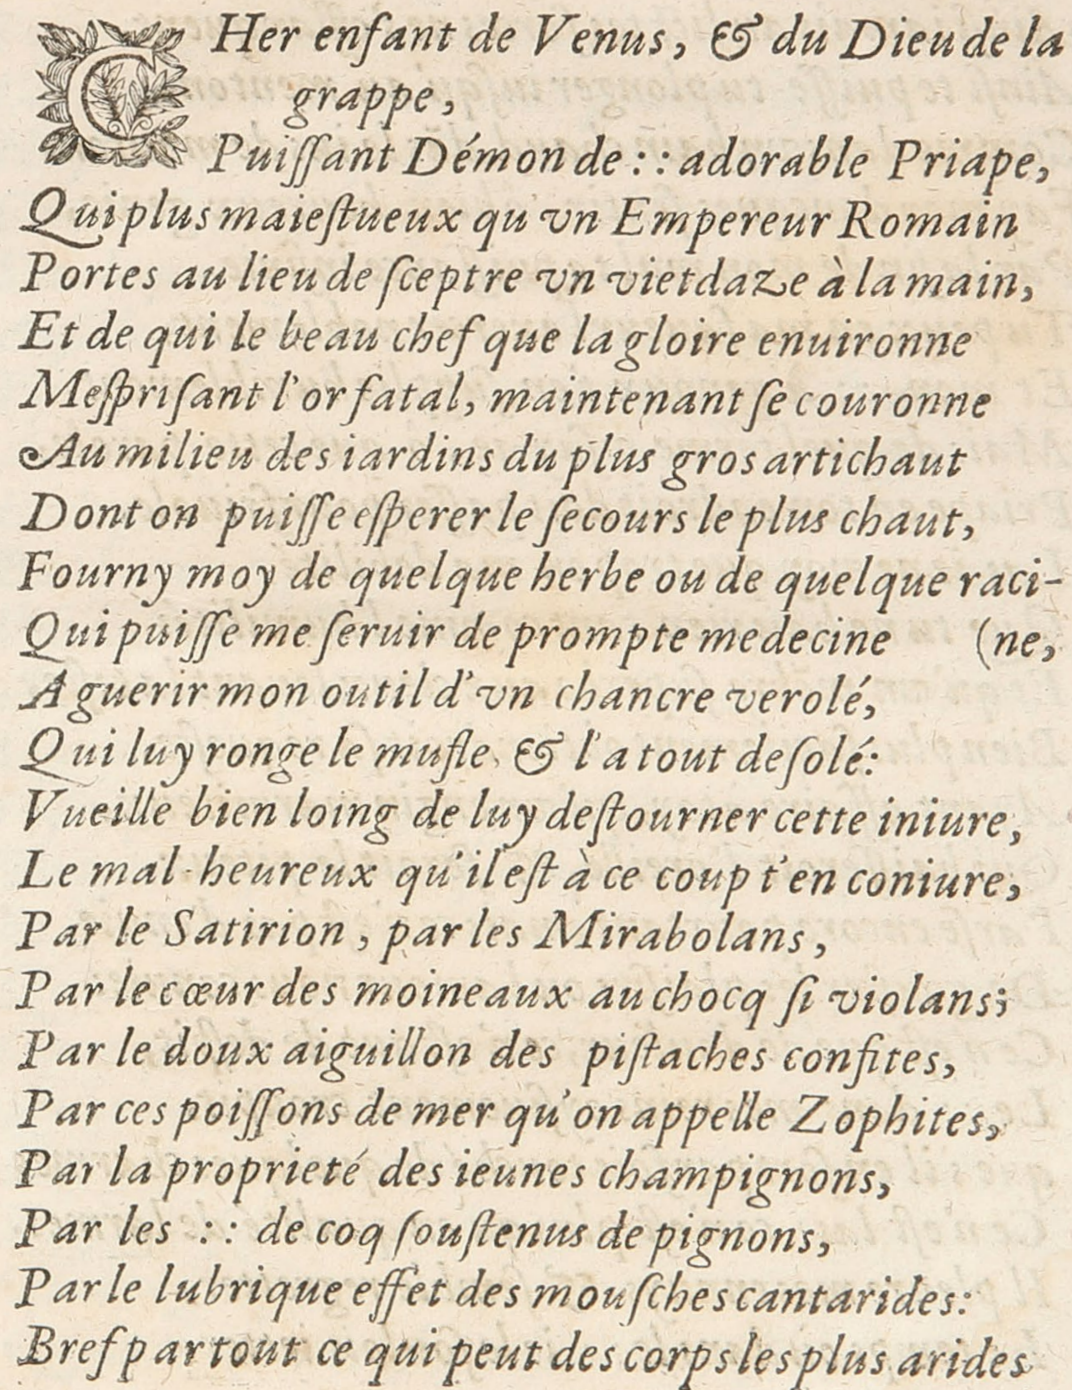 CHer enfant de Venus, & du Dieu de la
grappe,
Puiſſant Démon de :: adorable Priape,
Qui plus maieſtueux qu'vn Empereur Romain
Portes au lieu de ſceptre vn vietdaze à la main,
Et de qui le beau chef que la gloire enuironne
Meſpriſant l'or fatal, maintenant ſe couronne
Au milieu des iardins du plus gros artichaut
Dont on puiſſe eſperer le ſecours le plus chaut,
Fourny moy de quelque herbe ou de quelque raci-
Qui puiſſe me ſeruir de prompte medecine (ne,
A guerir mon outil d'vn chancre verolé,
Qui luy ronge le mufle, & l'a tout deſolé:
Vueille bien loing de luy deſtourner cette iniure,
Le mal-heureux qu'il eſt à ce coup t'en coniure,
Par le Satirion, par les Mirabolans,
Par le cœur des moineaux au chocq ſi violans;
Par le doux aiguillon des piſtaches confites,
Par ces poiſſons de mer qu'on appelle Zophites,
Par la proprieté des ieunes champignons,
Par les :: de coq ſouſtenus de pignons,
Par le lubrique effet des mouſches cantarides:
Bref par tout ce qui peut des corps les plus arides